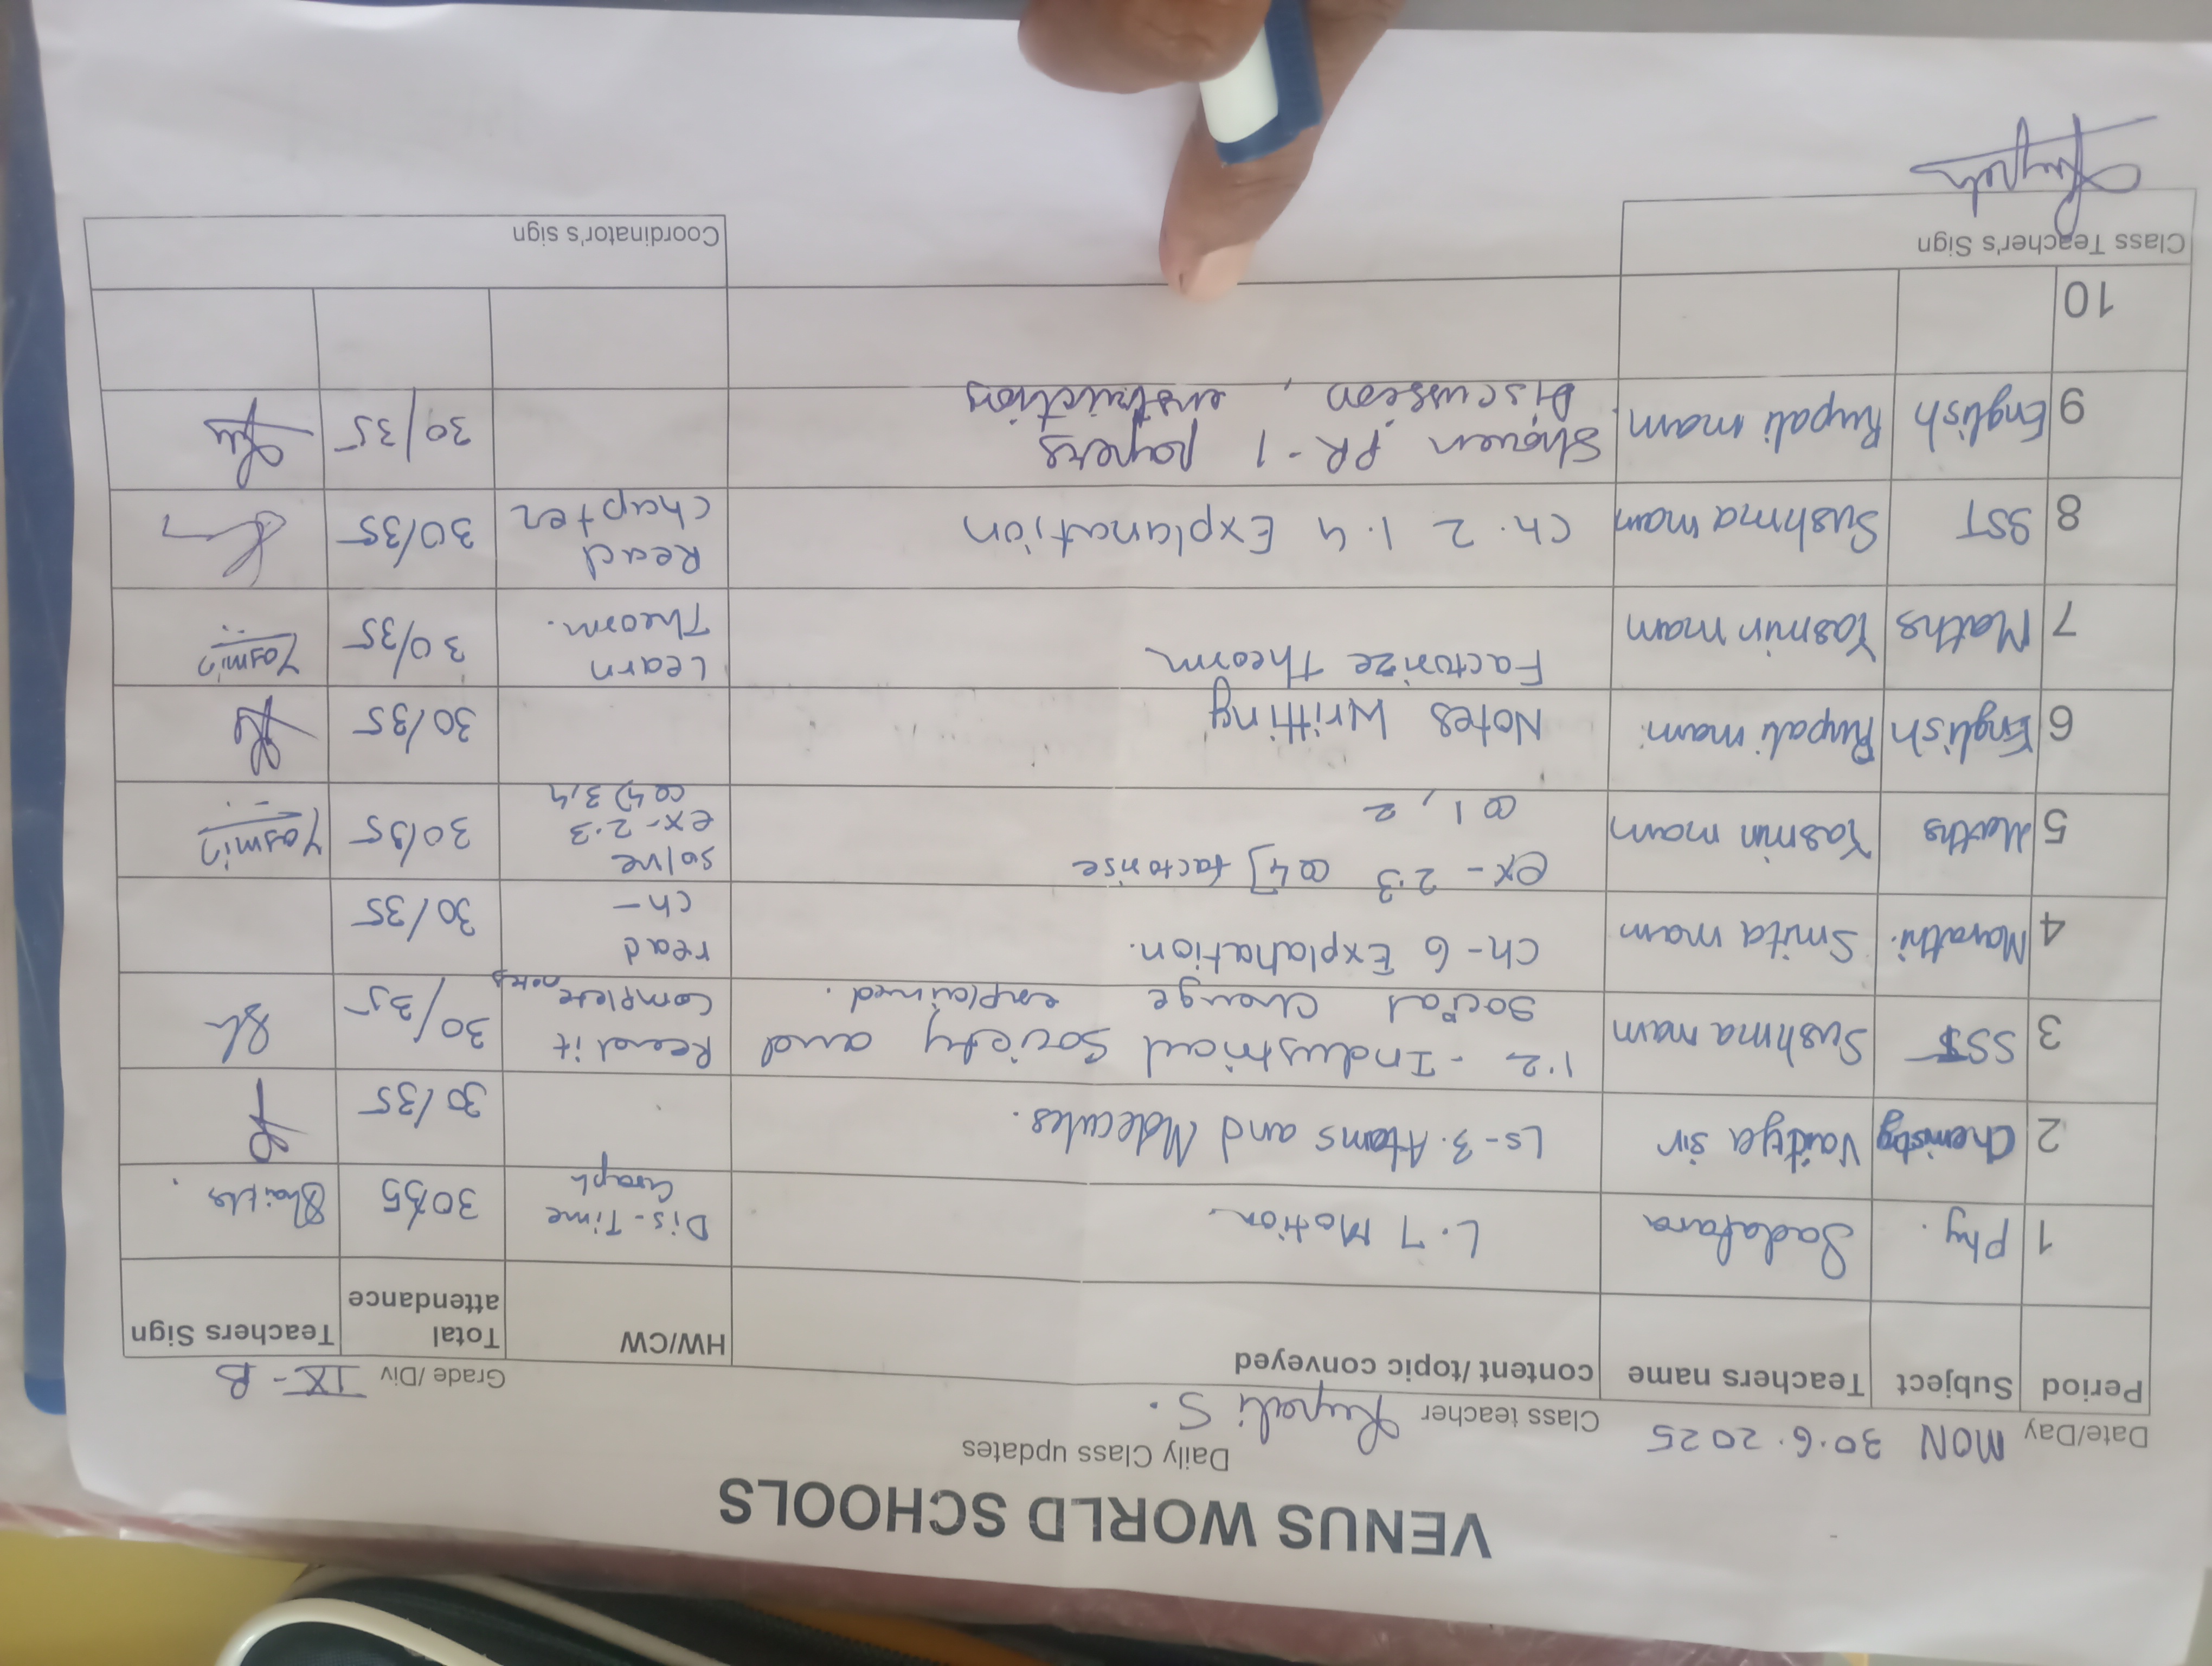 VENUS WORLD SCHOOLS
Daily Class updates
Date/Day MON 30.6.2025 Class teacher Rupali S. Grade /Div IX - B
Period Subject Teachers name content/topic conveyed HW/CW Total attendance Teachers Sign
1 Phy. Sadafara L.7 Motion. Dis-Time Graph 30/35
2 Chemistry Vaidya sir Ls-3. Atoms and Molecules. 30/35
3 SST Sushma mam 1.2 - Industrial Society and Read it 30/35
Social change explained. Complete notes
4 Marathi. Smita mam Ch-6 Explanation. read ch- 30/35
5 Maths Yasmin mam ex-2.3 Q4] factorise solve ex-2.3 30/35 Yasmin
Q 1, 2 Q4) 3,4
6 English Rupali mam. Notes Writting 30/35
7 Maths Yasmin mam Factorize Theorm Learn Theorm. 30/35 Yasmin
8 SST Sushma mam Ch.2 1.4 Explanation Read Chapter 30/35
9 English Rupali mam. Shown PR-1 papers 30/35
Discussion, instruction
10
Class Teacher's Sign Coordinator's sign